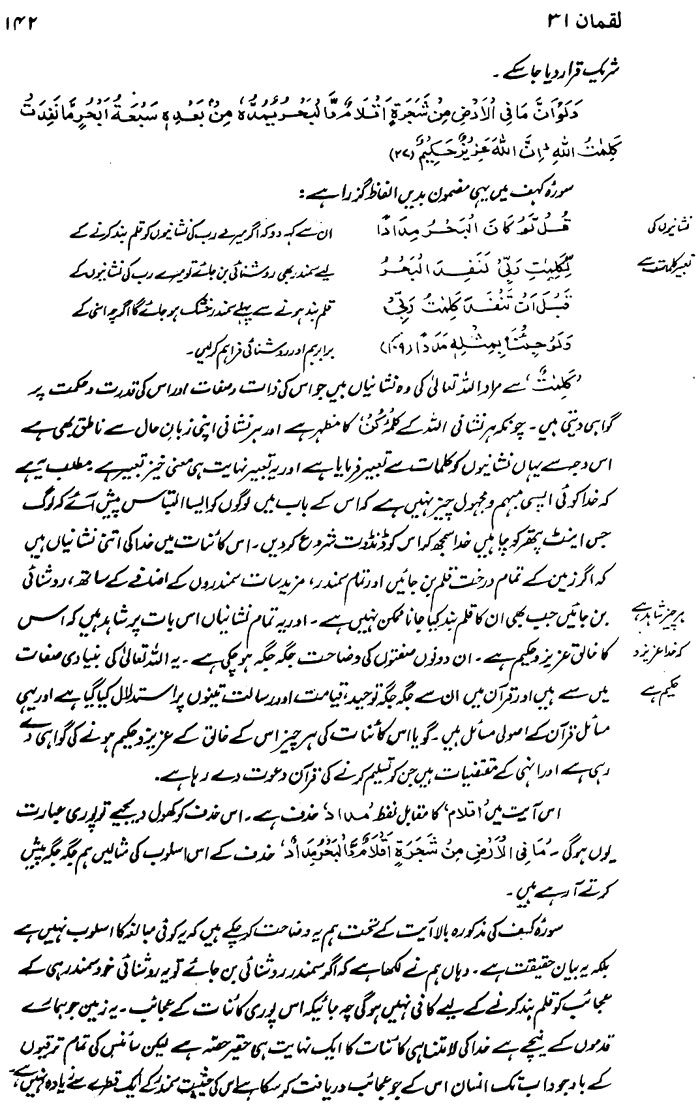 لقمان ۳۱
۱۴۲
شریک قرار دیا جاسکے۔
وَلَوْاَنَّ مَا فِی الْاَرْضِ مِنْ شَجَرَةٍ اَقْلَامٌ وَّالْبَحْرُ یَمُدُّهٗ مِنْۢ بَعْدِهٖ سَبْعَةُ اَبْحُرٍ مَّا نَفِدَتْ
کَلِمٰتُ اللهِ ؕ اِنَّ اللهَ عَزِیْزٌ حَکِیْمٌ (۲۷)
سورۂ کہف میں یہی مضمون بدیں الفاظ گزرا ہے:
قُلْ لَّوْ کَانَ الْبَحْرُ مِدَادًا
لِّکَلِمٰتِ رَبِّیْ لَنَفِدَ الْبَحْرُ
قَبْلَ اَنْ تَنْفَدَ کَلِمٰتُ رَبِّیْ
وَلَوْ جِئْنَا بِمِثْلِهٖ مَدَدًا (۱۰۹)
ان سے کہہ دو کہ اگر میرے رب کی نشانیوں کو قلم بند کرنے کے
لیے سمندر بھی روشنائی بن جائے تو میرے رب کی نشانیوں کے
قلم بند ہونے سے پہلے سمندر خشک ہو جائے گا اگرچہ اسی کے
برابر ہم اور روشنائی فراہم کرلیں۔
نشانیوں کی
تعبیر کلمات سے
’کَلِمٰتٌ‘ سے مراد اللہ تعالیٰ کی وہ نشانیاں ہیں جو اس کی ذات و صفات اور اس کی قدرت و حکمت پر
گواہی دیتی ہیں۔ چونکہ ہر نشانی اللہ کے کلمۂ ’کُنْ‘ کا مظہر ہے اور ہر نشانی اپنی زبانِ حال سے ناطق بھی ہے
اس وجہ سے یہاں نشانیوں کو کلمات سے تعبیر فرمایا ہے اور یہ تعبیر نہایت ہی معنی خیز تعبیر ہے۔ مطلب یہ ہے
کہ خدا کوئی ایسی مبہم و مجہول چیز نہیں ہے کہ اس کے باب میں لوگوں کو ایسا التباس پیش آئے کہ لوگ
جس اینٹ پتھر کو چاہیں خدا سمجھ کر اس کو ڈنڈوت شروع کردیں۔ اس کائنات میں خدا کی اتنی نشانیاں ہیں
کہ اگر زمین کے تمام درخت قلم بن جائیں اور تمام سمندر، مزید سات سمندروں کے اضافے کے ساتھ، روشنائی
بن جائیں جب بھی ان کا قلم بند کیا جانا ممکن نہیں ہے۔ اور یہ تمام نشانیاں اس بات پر شاہد ہیں کہ اس
کا خالق عزیز و حکیم ہے۔ ان دونوں صفتوں کی وضاحت جگہ جگہ ہو چکی ہے۔ یہ اللہ تعالیٰ کی بنیادی صفات
میں سے ہیں اور قرآن میں ان سے جگہ جگہ توحید، قیامت اور رسالت تینوں پر استدلال کیا گیا ہے اور یہی
مسائل قرآن کے اصولی مسائل ہیں۔ گویا اس کائنات کی ہر چیز اس کے خالق کے عزیز و حکیم ہونے کی گواہی دے
رہی ہے اور انہی کے مقتضیات ہیں جن کو تسلیم کرنے کی قرآن دعوت دے رہا ہے۔
ہر چیز شاہد ہے
کہ خدا عزیز و
حکیم ہے
اس آیت میں ’اقلام‘ کا مقابل لفظ ’مداد‘ حذف ہے۔ اس حذف کو کھول دیجیے تو پوری عبارت
یوں ہوگی۔ ’مَا فِی الْاَرْضِ مِنْ شَجَرَةٍ اَقْلَامٌ وَّالْبَحْرُ مِدَادٌ‘ حذف کے اس اسلوب کی مثالیں ہم جگہ جگہ پیش
کرتے آ رہے ہیں۔
سورۂ کہف کی مذکورہ بالا آیت کے تحت ہم یہ وضاحت کرچکے ہیں کہ یہ کوئی مبالغہ کا اسلوب نہیں ہے
بلکہ یہ بیان حقیقت ہے۔ وہاں ہم نے لکھا ہے کہ اگر سمندر روشنائی بن جائے تو یہ روشنائی خود سمندر ہی کے
عجائب کو قلم بند کرنے کے لیے کافی نہیں ہوگی چہ جائیکہ اس پوری کائنات کے عجائب۔ یہ زمین جو ہمارے
قدموں کے نیچے ہے خدا کی لامتناہی کائنات کا ایک نہایت ہی حقیر حصہ ہے لیکن سائنس کی تمام ترقیوں
کے باوجود اب تک انسان اس کے جو عجائب دریافت کرسکا ہے اس کی حیثیت سمندر کے ایک قطرے سے زیادہ نہیں ہے،